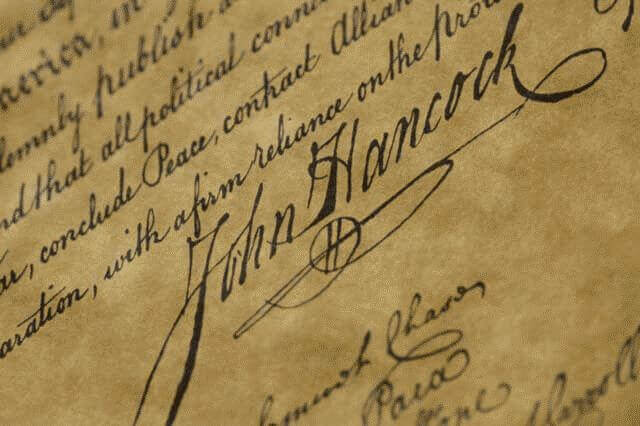 merica, in
lemnly publish a
nd that all political conne
ar, conclude Peace, contract Allian
aration, with a firm reliance on the pro
John Hancock
Chase,
Paca